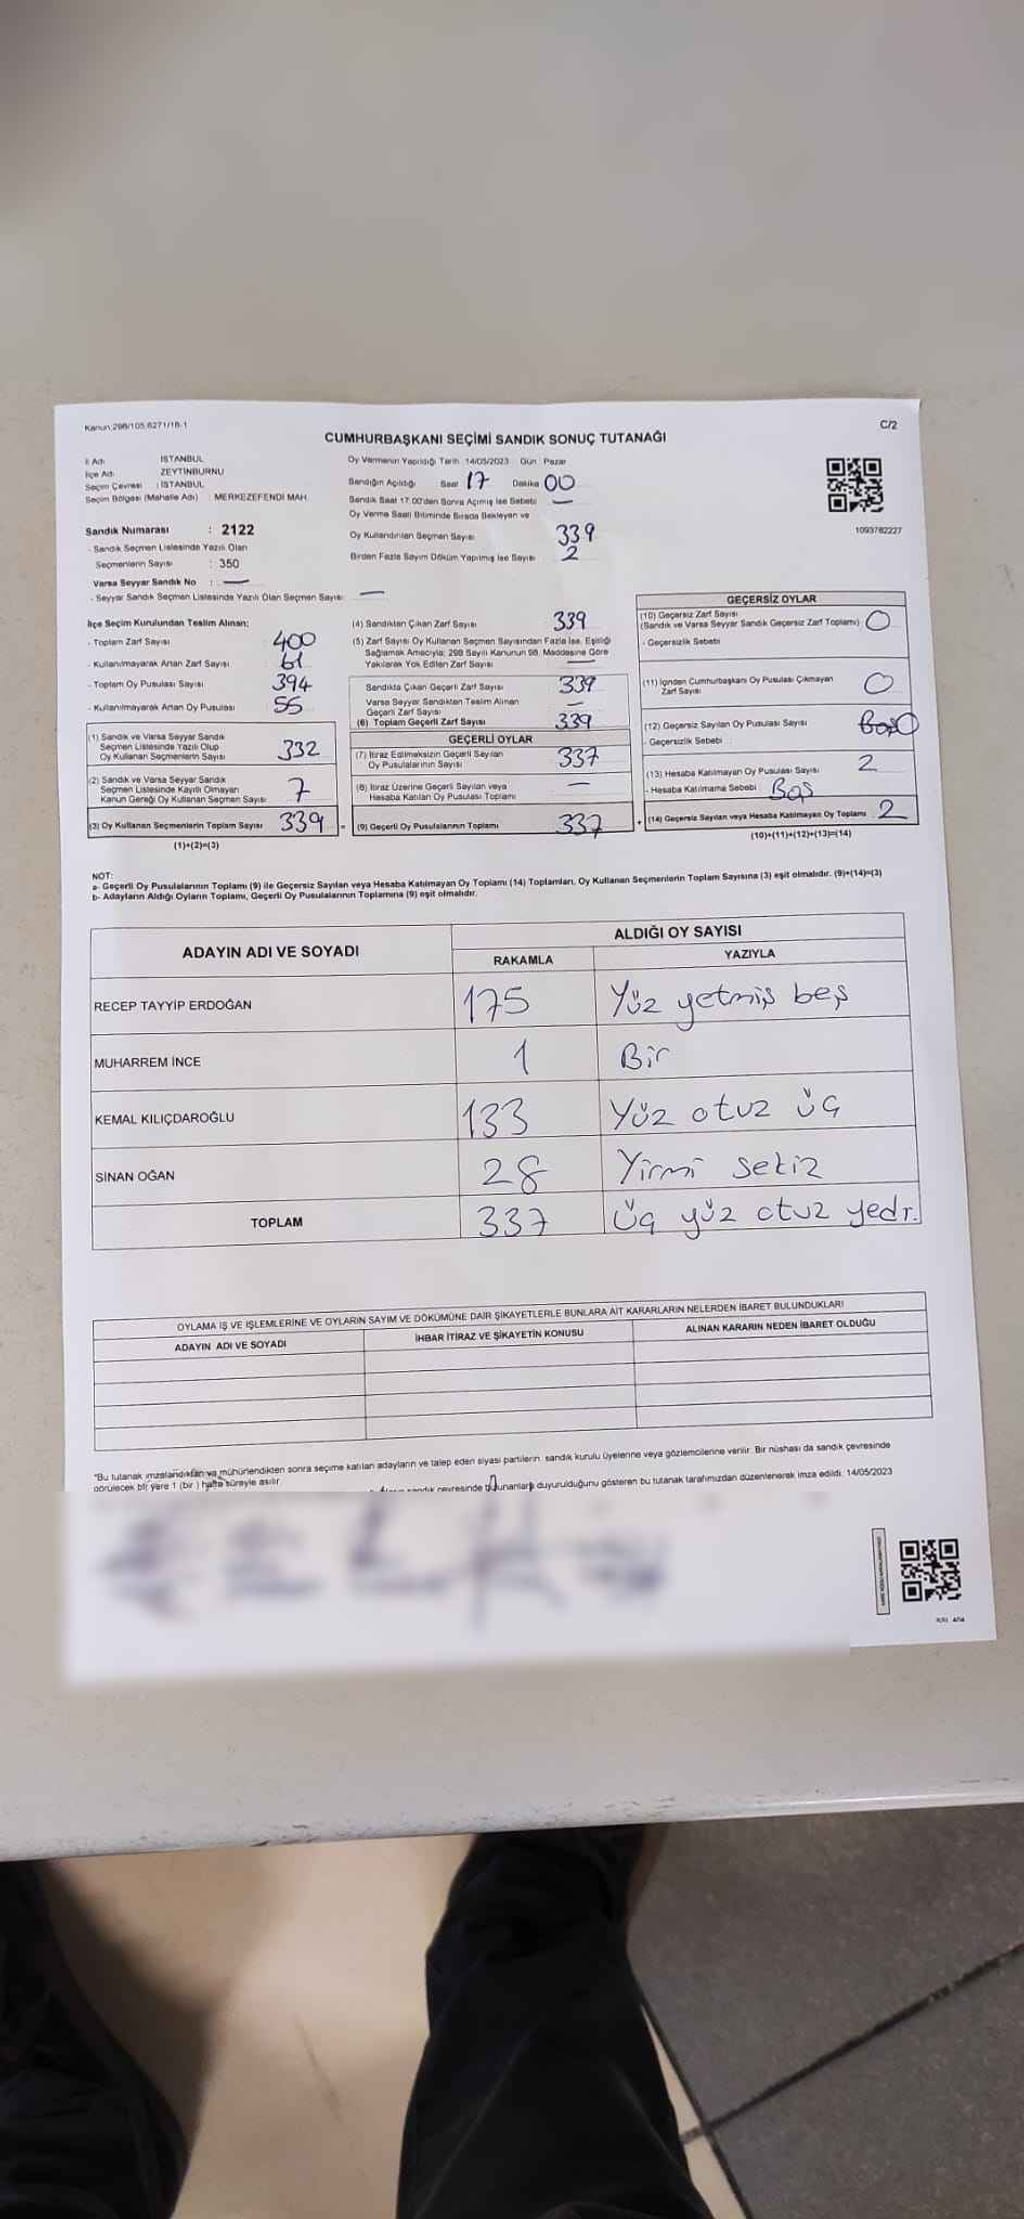 Kanun:298/105,6271/18-1
C/2
CUMHURBAŞKANI SEÇİMİ SANDIK SONUÇ TUTANAĞI
İl Adı : İSTANBUL
İlçe Adı : ZEYTİNBURNU
Seçim Çevresi : İSTANBUL
Seçim Bölgesi (Mahalle Adı) MERKEZEFENDİ MAH.
Sandık Numarası : 2122
- Sandık Seçmen Listesinde Yazılı Olan
Seçmenlerin Sayısı : 350
Varsa Seyyar Sandık No : —
- Seyyar Sandık Seçmen Listesinde Yazılı Olan Seçmen Sayısı: —
Oy Vermenin Yapıldığı Tarih 14/05/2023 Gün : Pazar
Sandığın Açıldığı Saat 17 Dakika 00
Sandık Saat 17:00'den Sonra Açılmış İse Sebebi —
Oy Verme Saati Bitiminde Sırada Bekleyen ve
Oy Kullandırılan Seçmen Sayısı 339
Birden Fazla Sayım Döküm Yapılmış İse Sayısı 2
1093782227
İlçe Seçim Kurulundan Teslim Alınan;
- Toplam Zarf Sayısı 400
- Kullanılmayarak Artan Zarf Sayısı 61
- Toplam Oy Pusulası Sayısı 394
- Kullanılmayarak Artan Oy Pusulası 55
(1) Sandık ve Varsa Seyyar Sandık
Seçmen Listesinde Yazılı Olup
Oy Kullanan Seçmenlerin Sayısı 332
(2) Sandık ve Varsa Seyyar Sandık
Seçmen Listesinde Kayıtlı Olmayan
Kanun Gereği Oy Kullanan Seçmen Sayısı 7
(3) Oy Kullanan Seçmenlerin Toplam Sayısı 339
(1)+(2)=(3)
(4) Sandıktan Çıkan Zarf Sayısı 339
(5) Zarf Sayısı Oy Kullanan Seçmen Sayısından Fazla İse, Eşitliği
Sağlamak Amacıyla; 298 Sayılı Kanunun 98. Maddesine Göre
Yakılarak Yok Edilen Zarf Sayısı —
Sandıkta Çıkan Geçerli Zarf Sayısı 339
Varsa Seyyar Sandıktan Teslim Alınan
Geçerli Zarf Sayısı —
(6) Toplam Geçerli Zarf Sayısı 339
GEÇERLİ OYLAR
(7) İtiraz Edilmeksizin Geçerli Sayılan
Oy Pusulalarının Sayısı 337
(8) İtiraz Üzerine Geçerli Sayılan veya
Hesaba Katılan Oy Pusulası Toplamı —
(9) Geçerli Oy Pusulalarının Toplamı 337
GEÇERSİZ OYLAR
(10) Geçersiz Zarf Sayısı
(Sandık ve Varsa Seyyar Sandık Geçersiz Zarf Toplamı) 0
- Geçersizlik Sebebi
(11) İçinden Cumhurbaşkanı Oy Pusulası Çıkmayan
Zarf Sayısı 0
(12) Geçersiz Sayılan Oy Pusulası Sayısı
- Geçersizlik Sebebi
(13) Hesaba Katılmayan Oy Pusulası Sayısı 2
- Hesaba Katılmama Sebebi Boş
(14) Geçersiz Sayılan veya Hesaba Katılmayan Oy Toplamı 2
(10)+(11)+(12)+(13)=(14)
NOT:
a- Geçerli Oy Pusulalarının Toplamı (9) ile Geçersiz Sayılan veya Hesaba Katılmayan Oy Toplamı (14) Toplamları, Oy Kullanan Seçmenlerin Toplam Sayısına (3) eşit olmalıdır. (9)+(14)=(3)
b- Adayların Aldığı Oyların Toplamı, Geçerli Oy Pusulalarının Toplamına (9) eşit olmalıdır.
ADAYIN ADI VE SOYADI
ALDIĞI OY SAYISI
RAKAMLA YAZIYLA
RECEP TAYYİP ERDOĞAN 175 Yüz yetmiş beş
MUHARREM İNCE 1 Bir
KEMAL KILIÇDAROĞLU 133 Yüz otuz üç
SİNAN OĞAN 28 Yirmi sekiz
TOPLAM 337 Üç yüz otuz yedi
OYLAMA İŞ VE İŞLEMLERİNE VE OYLARIN SAYIM VE DÖKÜMÜNE DAİR ŞİKAYETLERLE BUNLARA AİT KARARLARIN NELERDEN İBARET BULUNDUKLARI
ADAYIN ADI VE SOYADI İHBAR İTİRAZ VE ŞİKAYETİN KONUSU ALINAN KARARIN NEDEN İBARET OLDUĞU
"Bu tutanak imzalandıktan ve mühürlendikten sonra seçime katılan adayların ve talep eden siyasi partilerin sandık kurulu üyelerine veya gözlemcilerine verilir. Bir nüshası da sandık çevresinde
görülecek bir yere 1 (bir) hafta süreyle asılır.
sandık çevresinde bulunanlara duyurulduğunu gösteren bu tutanak tarafımızdan düzenlenerek imza edildi. 14/05/2023